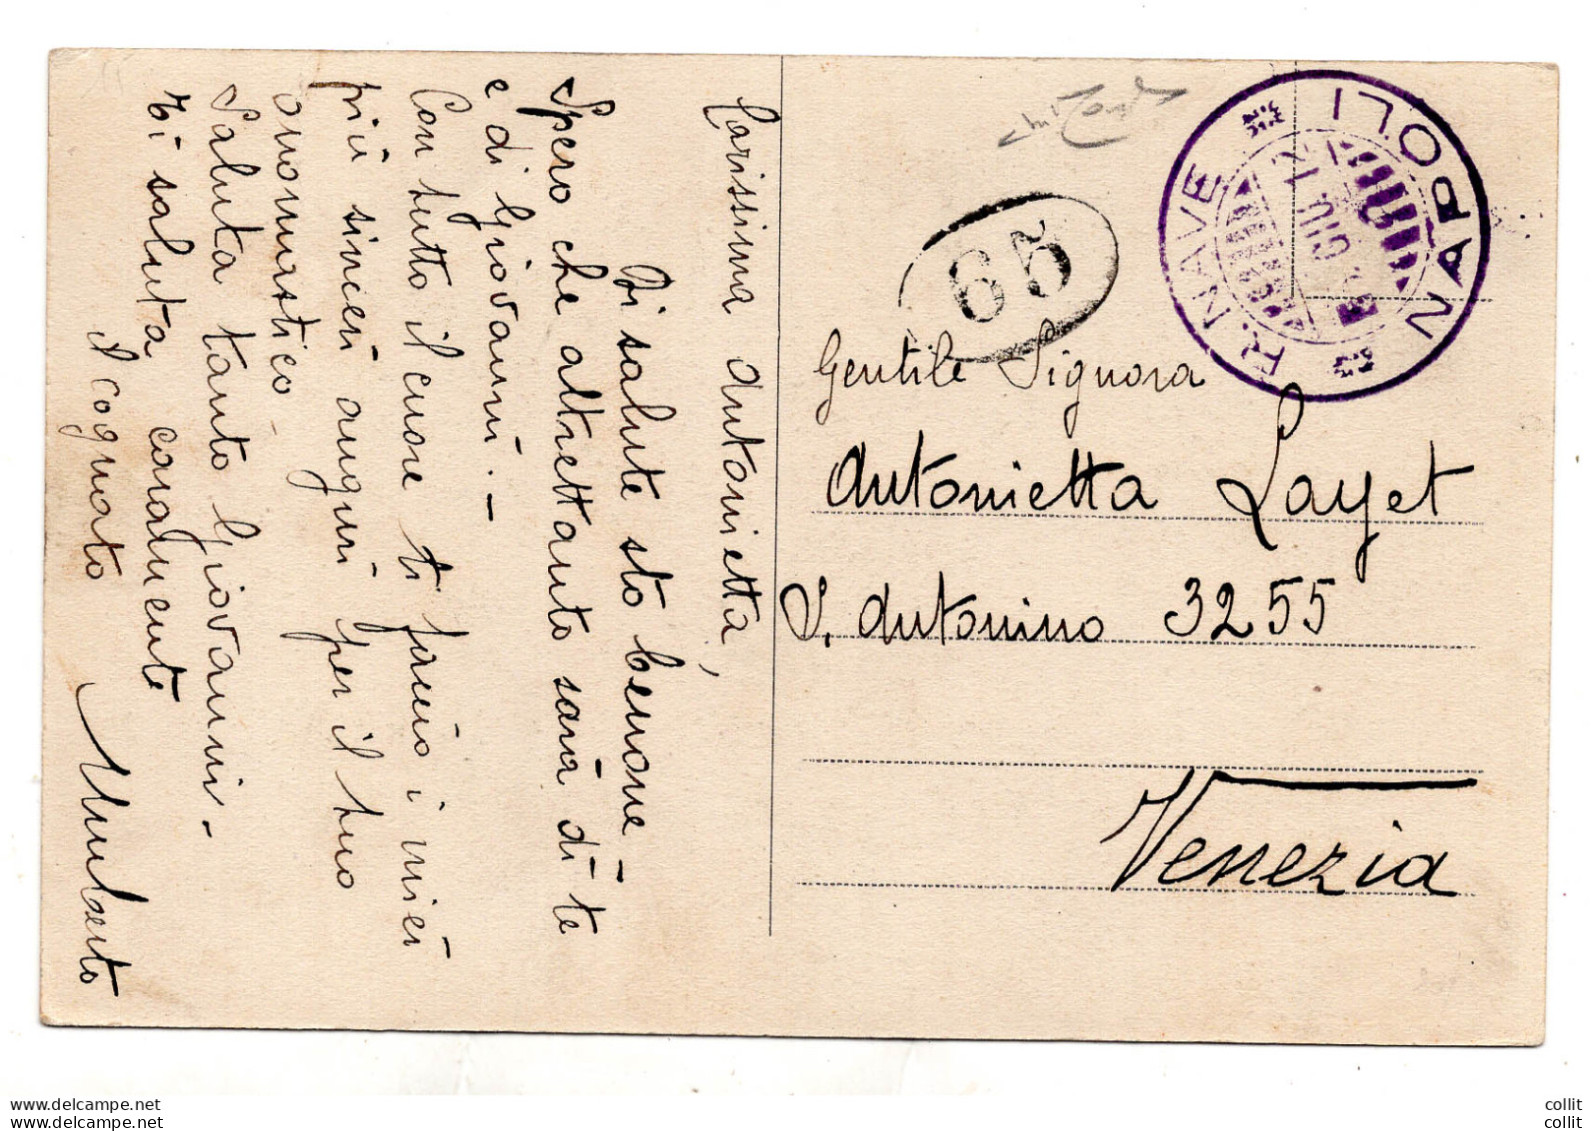 Carissima Antonietta,
Di salute sto benone –
Spero che altrettanto sarà di te
e di Giovanni. –
Con tutto il cuore ti faccio i miei
più sinceri auguri per il tuo
onomastico –
Saluta tanto Giovanni –
Ti saluta caramente
il cognato
Umberto
R. NAVE
NAPOLI
GIU.
65
Gentile Signora
Antonietta Layet
S. Antonino 3255
Venezia
www.delcampe.net
www.delcampe.net
collit
collit